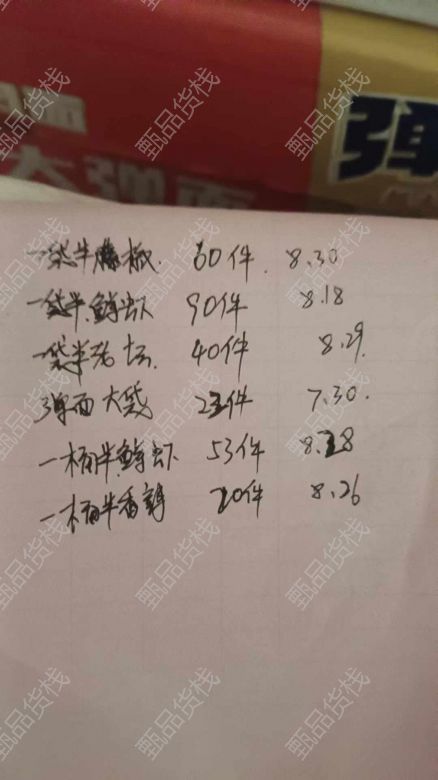 大弹面
弹
一袋半藤椒 60件 8.30
一袋半鲜虾 90件 8.18
一袋半老坛 40件 8.29
弹面大袋 23件 7.30.
一桶半鲜虾 53件 8.28
一桶半香辣 20件 8.26
甄品货栈